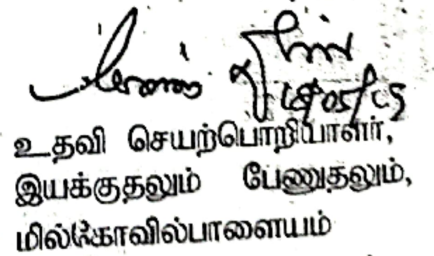 உதவி செயற்பொறியாளர்,
இயக்குதலும் பேணுதலும்,
மில்கோவில்பாளையம்